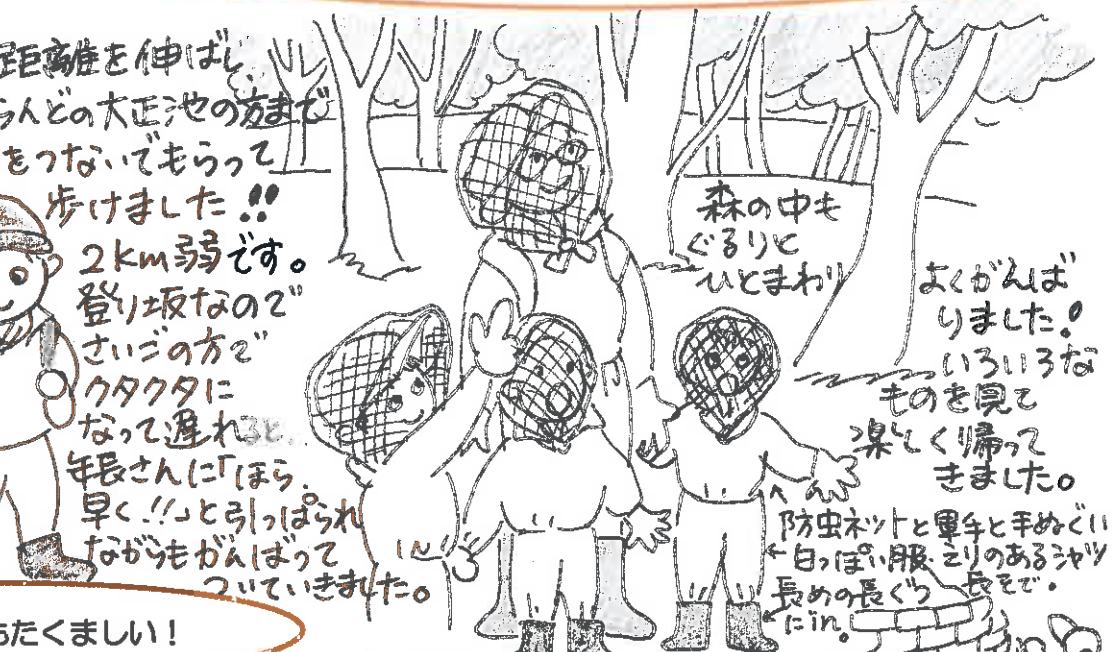 距離を伸ばし
らんどの大正池の方まで
をつないでもらって
歩けました!!
2km弱です。
登り坂なので
さいごの方で
クタクタに
なって遅れると、
年長さんに「ほら、
早く!!」と引っぱられ
ながらもがんばって
ついていきました。
森の中も
ぐるりと
ひとまわり
よくがんば
りました!
いろいろな
ものを見て
楽しく帰って
きました。
防虫ネットと軍手と手ぬぐい
白っぽい服、えりのあるシャツ
長そで。
長めの長ぐつ
にin。
たくましい!